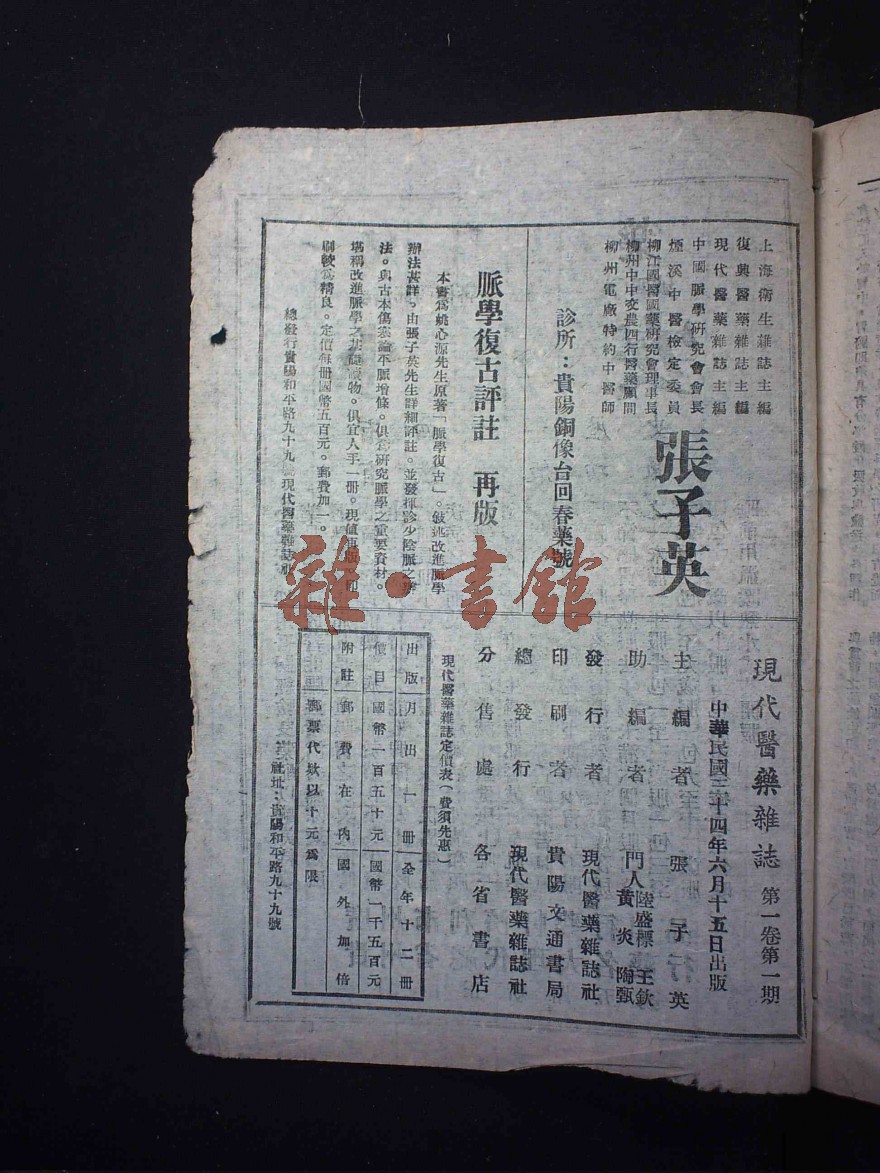 上海衛生雜誌主編
復興醫藥雜誌主編
現代醫藥雜誌主編
中國脈學研究會會長
煙溪中醫檢定委員
柳江國醫國藥研究會理事長
柳州中中交農四行醫藥顧問
柳州電廠特約中醫師
張子英
診所：貴陽銅像台回春藥號
脈學復古評註　再版
本書爲姚心源先生原著「脈學復古」。敍述改進脈學
辦法甚詳。由張子英先生詳細評註。並發揮診少陰脈之
法。與古本傷寒論平脈增條。俱爲研究脈學之重要資材。
堪稱改進脈學之基礎讀物。俱宜人手一冊。現値再版。印
刷較爲精良。定價每冊國幣五百元。郵費加一。
總發行貴陽和平路九十九號現代醫藥雜誌社
現代醫藥雜誌　第一卷第一期
中華民國三十四年六月十五日出版
主編者　張子英
助編者　門人　陸盛標　王欽
黃炎　陶甄
發行者　現代醫藥雜誌社
印刷者　貴陽文通書局
總發行　現代醫藥雜誌社
分售處　各省書店
現代醫藥雜誌定價表（費須先惠）
出版　月出一冊　全年十二冊
價目　國幣一百五十元　國幣一千五百元
附註　郵費在內　國外加倍
郵票代欵以十元爲限
社址：貴陽和平路九十九號
雜·書館